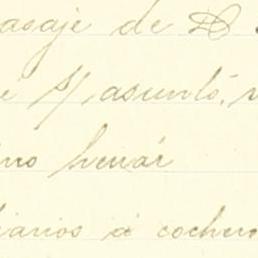 asaje de D
e S/ asunto,
no henar
iarios á cochero